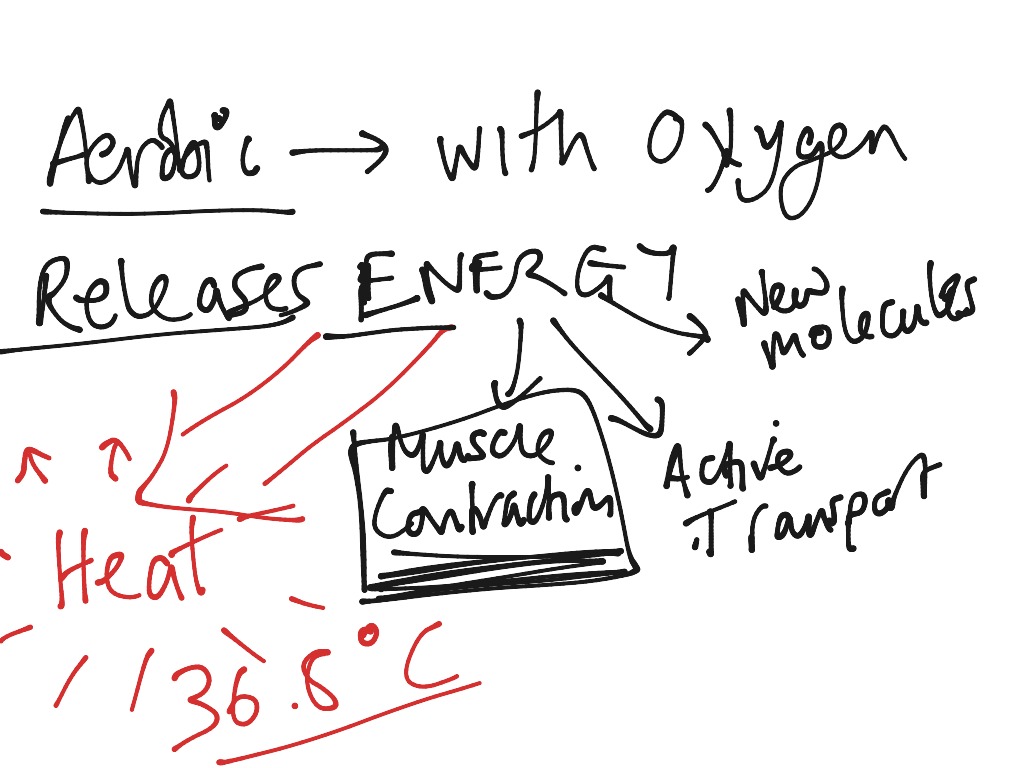 Aerobic → with Oxygen
Releases ENERGY
New
molecules
Muscle
Contraction
Active
Transport
Heat
36.8°C